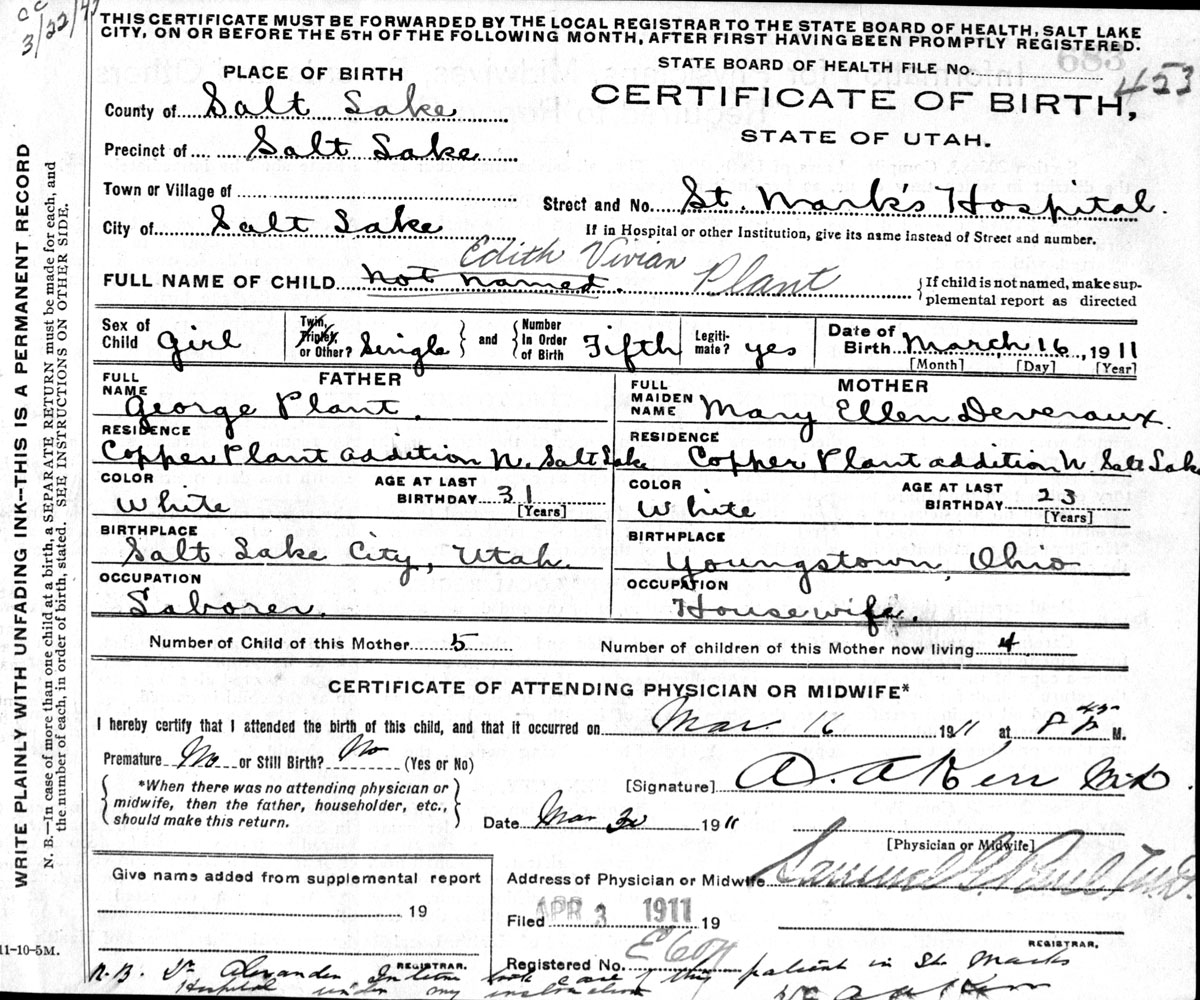 cc
3/22/4
THIS CERTIFICATE MUST BE FORWARDED BY THE LOCAL REGISTRAR TO THE STATE BOARD OF HEALTH, SALT LAKE
CITY, ON OR BEFORE THE 5TH OF THE FOLLOWING MONTH, AFTER FIRST HAVING BEEN PROMPTLY REGISTERED.
WRITE PLAINLY WITH UNFADING INK--THIS IS A PERMANENT RECORD
N. B.—In case of more than one child at a birth, a SEPARATE RETURN must be made for each, and
the number of each, in order of birth, stated. SEE INSTRUCTIONS ON OTHER SIDE.
STATE BOARD OF HEALTH FILE No. 453
683
PLACE OF BIRTH
CERTIFICATE OF BIRTH,
STATE OF UTAH.
County of Salt Lake
Precinct of Salt Lake
Town or Village of
Street and No. St. Mark's Hospital.
City of Salt Lake
If in Hospital or other Institution, give its name instead of Street and number.
Edith Vivian
FULL NAME OF CHILD Not Named. Plant
If child is not named, make sup-
plemental report as directed
Sex of Child Girl
Twin, Triplet, or Other? Single and Number In Order of Birth Fifth
Legiti-mate? yes
Date of Birth March 16, 1911
[Month] [Day] [Year]
FATHER
FULL NAME George Plant.
MOTHER
FULL MAIDEN NAME Mary Ellen Deveraux.
RESIDENCE Copper Plant addition N. Salt Lake
RESIDENCE Copper Plant addition N. Salt Lake
COLOR White AGE AT LAST BIRTHDAY 31 [Years]
COLOR White AGE AT LAST BIRTHDAY 23 [Years]
BIRTHPLACE Salt Lake City, Utah.
BIRTHPLACE Youngstown, Ohio
OCCUPATION Laborer.
OCCUPATION Housewife.
Number of Child of this Mother 5
Number of children of this Mother now living 4
CERTIFICATE OF ATTENDING PHYSICIAN OR MIDWIFE*
I hereby certify that I attended the birth of this child, and that it occurred on Mar. 16 1911 at P M.
Premature No or Still Birth? No (Yes or No)
*When there was no attending physician or
midwife, then the father, householder, etc.,
should make this return.
[Signature] A. A Kerr M.D.
Date Mar 30 1911
[Physician or Midwife]
Give name added from supplemental report
19
REGISTRAR.
Address of Physician or Midwife
Samuel G. Paul, M.D.
Filed APR 3 1911 19
REGISTRAR.
Registered No.
11-10-5M.
N.B. Dr Alexander Intern took case of this patient in St. Marks
Hospital under my instructions